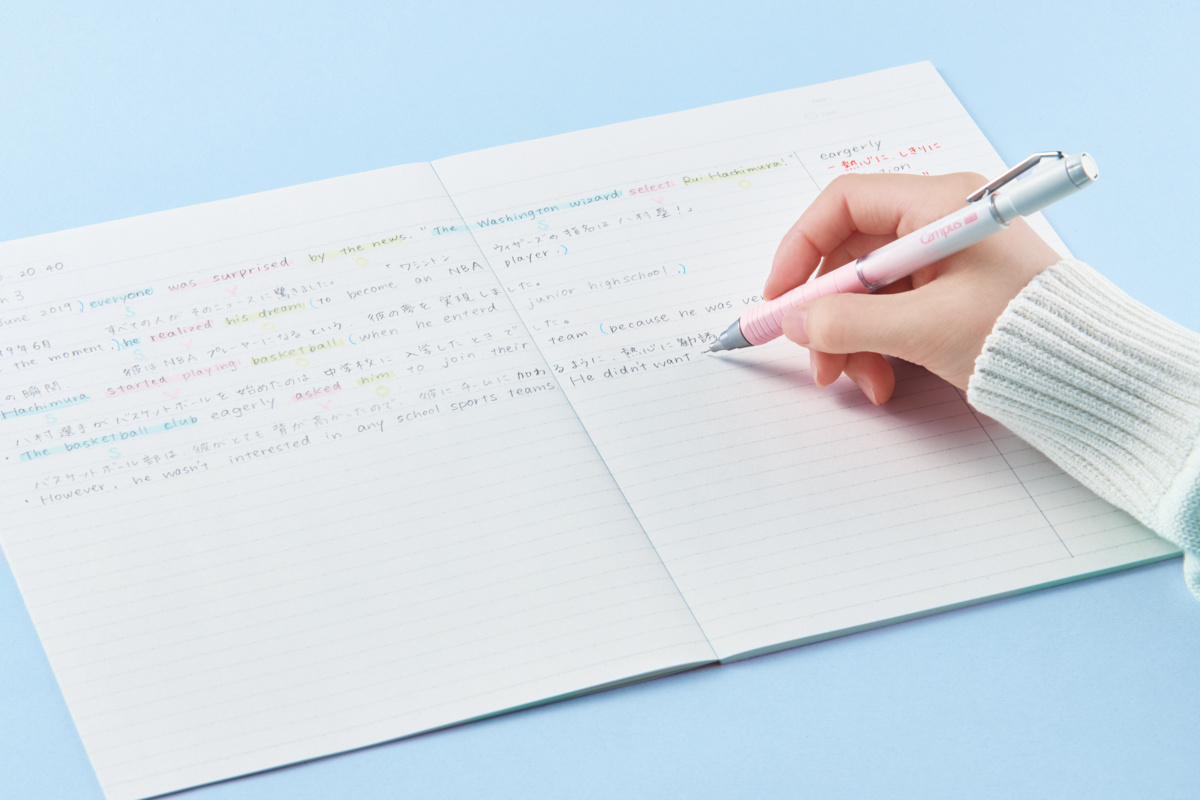 20.40
n 3
June 2019 ) everyone was surprised by the news. " The Washington wizard select Rui Hachimura!"
S V O S V O
19年6月 すべての人が そのニュースに驚きました。 "ワシントン ウィザーズの指名は八村塁!"
the moment ,) he realized his dream (to become an NBA player.)
S V O
の瞬間、 彼はNBAプレーヤーになるという、彼の夢を実現しました。
Hachimura started playing basketball (when he enterd junior highschool.)
S V O
八村選手がバスケットボールを始めたのは 中学校に入学したときでした。
・The basketball club eagerly asked him to join their team (because he was ver
S V O
バスケットボール部は、彼がとても背が高かったので、彼にチームに加わるように、熱心に勧誘
・However, he wasn't interested in any school sports teams. He didn't want
eagerly
→熱心に、しきりに
Campus